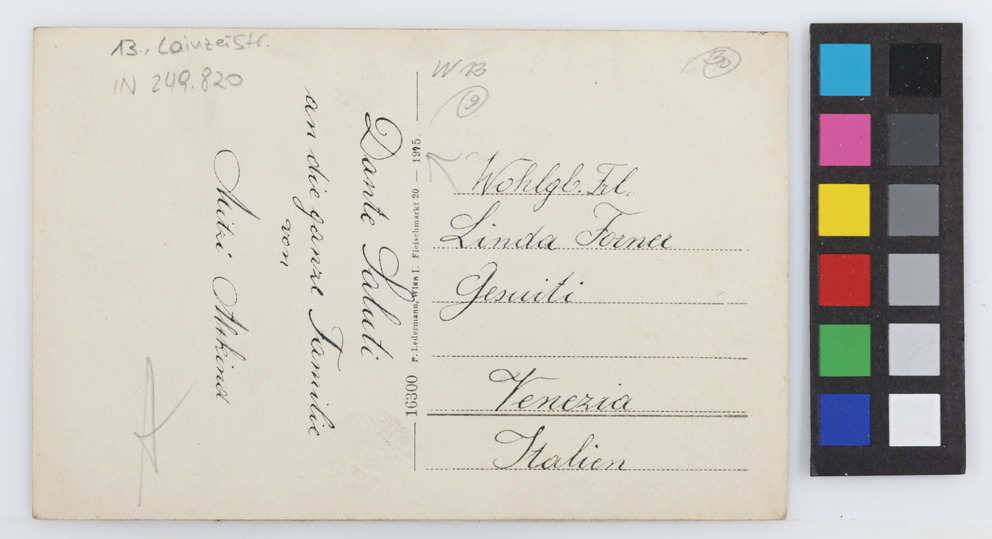 13., Lainzerstr.
IN 249.820
W 13
9
30
Dante Saluti
an die ganze Familie
von
Mitzi
16300 P. Ledermann, Wien I. Fleischmarkt 20 — 1915
Wohlgb. Frl.
Linda Forner
Gesuiti
Venezia
Italien